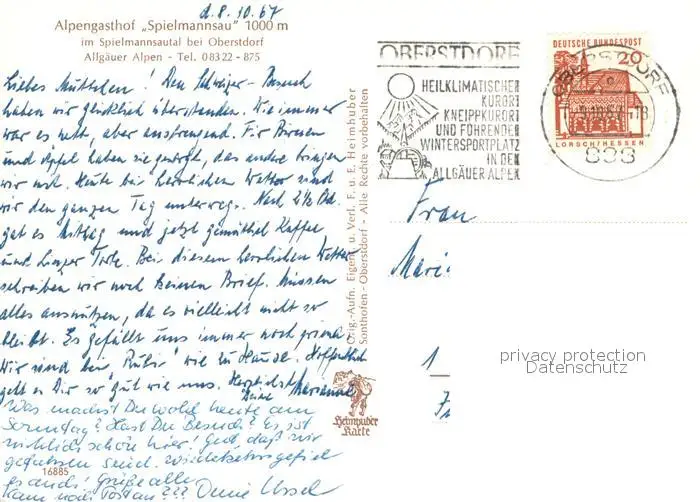 d. 8. 10. 67
Alpengasthof „Spielmannsau" 1000 m
im Spielmannsautal bei Oberstdorf
Allgäuer Alpen - Tel. 08322 - 875
Liebes Mutterlen! Den Schweizer-Besuch
haben wir glücklich überstanden. Wie immer
war es nett, aber anstrengend. Für Birnen
und Äpfel haben sie gesorgt, das andere bringen
wir mit. Heute bei herrlichem Wetter sind
wir den ganzen Tag unterwegs. Nach 2½ Std.
gab es Mittag und jetzt gemütlich Kaffee
und Linzer Torte. Bei diesem herrlichen Wetter
schreiben wir noch keinen Brief. Müssen
alles ausnützen, da es vielleicht nicht so
bleibt. Es gefällt uns immer noch prima.
Wir sind bei „Rubis" wie zu Hause. Hoffentlich
geht es Dir so gut wie uns. Herzlichst
Deine Marianne
Was machst Du wohl heute am
Sonntag? Hast Du Besuch? Es ist
wirklich schön hier! Gut, daß wir
gefahren sind.
es auch! Grüße alle
???  Deine Ursel
16885
Orig.-Aufn. Eigent. u. Verl. F. u. E. Heimhuber
Sonthofen - Oberstdorf - Alle Rechte vorbehalten
Heimhuber
Karte
OBERSTDORF
HEILKLIMATISCHER
KURORT
KNEIPPKURORT
UND FÜHRENDER
WINTERSPORTPLATZ
IN DEN
ALLGÄUER ALPEN
DEUTSCHE BUNDESPOST
20
LORSCH/HESSEN
OBERSTDORF
898
Frau
Mari
1
privacy protection
Datenschutz